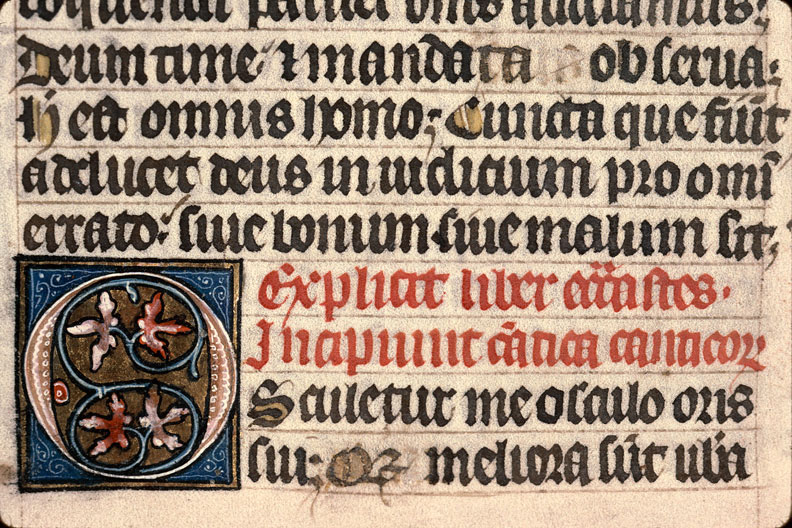 Deum time ⁊ mandata obserua:
h̄ est omnis homo; Cuncta que fiūt
adducet deus in iudicium pro omī
errato: siue bonum siue malum sit;
Explicit liber ecc̄astes.
Incipiunt cātica canticoꝝ
Osculetur me osculo oris
sui; Qꝫ meliora sūt ub̄a